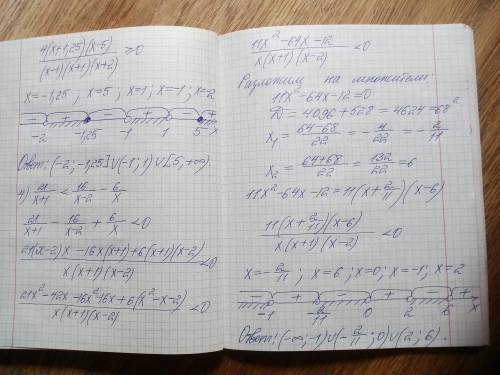 4(x+1,25)(x-5) / (x-1)(x+1)(x+2) ≥0
x=-1,25 ; x=5 ; x=1; x=-1; x=2
- + - + - +
-2 -1,25 -1 1 5 x
Ответ: (-2; -1,25]∪(-1; 1)∪[5, +∞).
4) 21/x+1 < 16/x-2 - 6/x
21/x+1 - 16/x-2 + 6/x <0
21(x-2)x - 16x(x+1)+6(x+1)(x-2) / x(x+1)(x-2) <0
21x²-42x-16x²-16x+6(x²-x-2) / x(x+1)(x-2) <0
11x²-64x-12 / x(x+1)(x-2) <0
Разложим на множители:
11x²-64x-12=0
D = 4096 + 528 = 4624 = 68²
x₁ = 64-68/22 = -4/22 = -2/11
x₂ = 64+68/22 = 132/22 = 6
11x²-64x-12 = 11(x+2/11)(x-6)
11(x+2/11)(x-6) / x(x+1)(x-2) <0
x=-2/11 ; x=6 ; x=0; x=-1; x=2
- + - + - +
-1 -2/11 0 2 6 x
Ответ: (-∞;-1)∪(-2/11; 0)∪(2; 6).